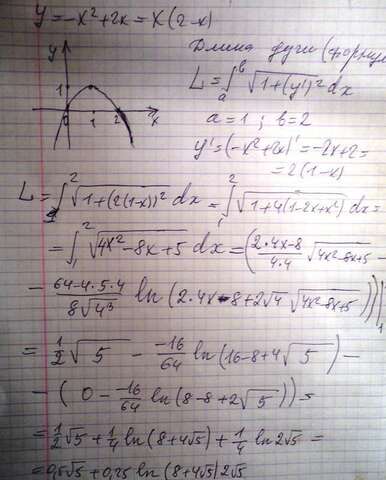 y = -x² + 2x = x(2-x)
Длина дуги (формула
y
1
0 1 2 x
L = ∫ₐᵇ √(1+(y')²) dx
a = 1 ; b = 2
y' = (-x²+2x)' = -2x+2 =
= 2(1-x)
L = ∫₁² √(1+(2(1-x))²) dx = ∫₁² √(1+4(1-2x+x²)) dx =
= ∫₁² √(4x²-8x+5) dx = ((2·4x-8)/(4·4) √(4x²-8x+5) -
- (64-4·5·4)/(8√4³) ln(2·4x-8+2√4 √(4x²-8x+5))) |₁
= 1/2 √5 - -16/64 ln(16-8+4√5) -
- (0 - -16/64 ln(8-8+2√5)) =
= 1/2 √5 + 1/4 ln(8+4√5) + 1/4 ln 2√5 =
= 0,5√5 + 0,25 ln(8+4√5) 2√5